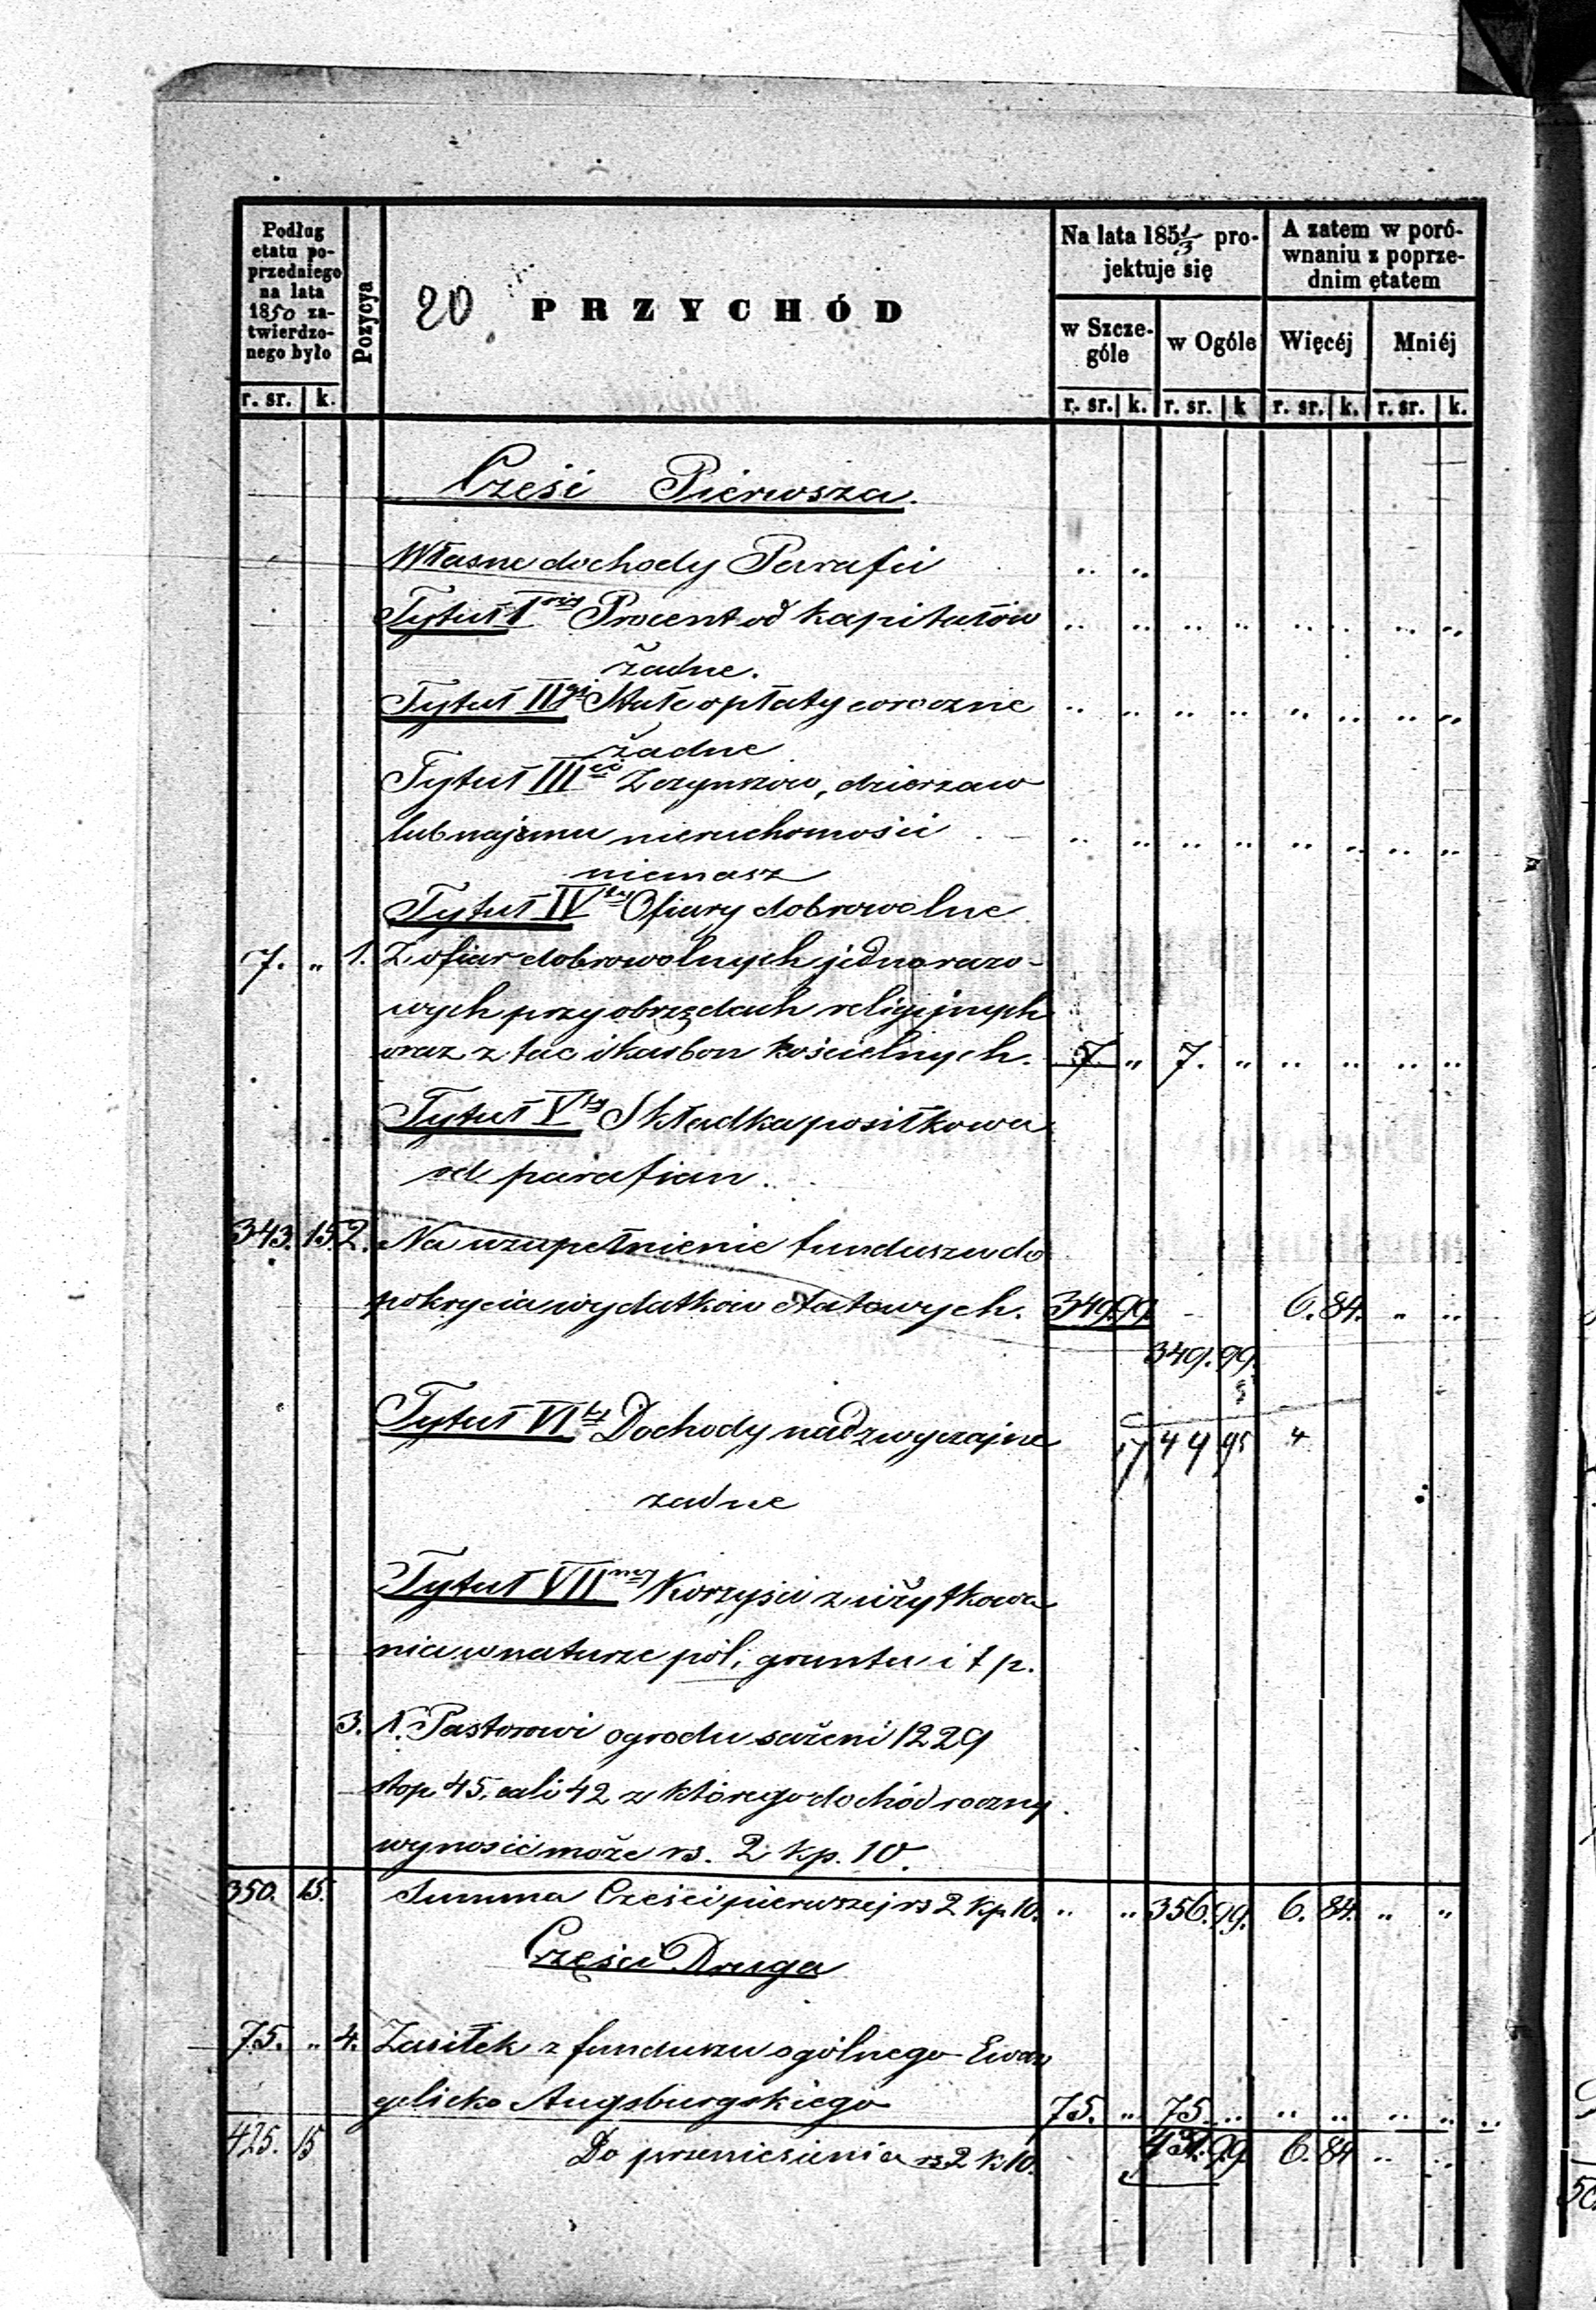 Podług etatu poprzedniego na lata 1850 zatwierdzonego było
Pozycya
20 PRZYCHÓD
Na lata 185 1/3 projektuje się
A zatem w porównaniu z poprzednim etatem
w Szczególe
w Ogóle
Więcéj
Mniéj
r. sr. k.
r. sr. k. r. sr. k r. sr. k. r. sr. k.
Cześć Pierwsza.
Własne dochody Parafii .. ..
Tytuł I Procent od kapitałów .. .. .. .. .. .. .. ..
żadne.
Tytuł II Stałe opłaty coroczne .. .. .. .. .. .. .. ..
żadne
Tytuł III Z czynszow, dzierzaw
lub najemu nieruchomości .. .. .. .. .. .. .. ..
niemasz
Tytuł IV Ofiary dobrowolne
7. " 1. Z ofiar dobrowolnych jednorazo-
wych przy obrzędach religijnych
oraz z tac i karbon kościelnych. 7. " 7. " .. .. .. ..
Tytuł V Składka posiłkowa
od parafian.
343. 15 2. Na uzupełnienie funduszu do
pokrycia wydatkow etatowych. 349. 99. 6. 84. " ..
349. 99.
Tytuł VI Dochody nadzwyczajne
żadne
Tytuł VII Korzyści z użytkowa
nia w naturze pól, gruntu i t p.
3. N. Pastorowi ogrodu sażeni 1229
stop 45. cali 42 z którego dochód roczny
wynosić może rs. 2 kp. 10.
350. 15. Summa Cześci pierwszej rs 2 kp 10. .. .. 356. 99. 6. 84. " "
Cześć Druga
75. " 4. Zasiłek z funduszu ogólnego Ewan
gelicko Augsburgskiego 75. " 75. .. .. .. .. ..
425. 15 Do przeniesienia rs 2 k 10. 431. 99 6. 84 .. ..